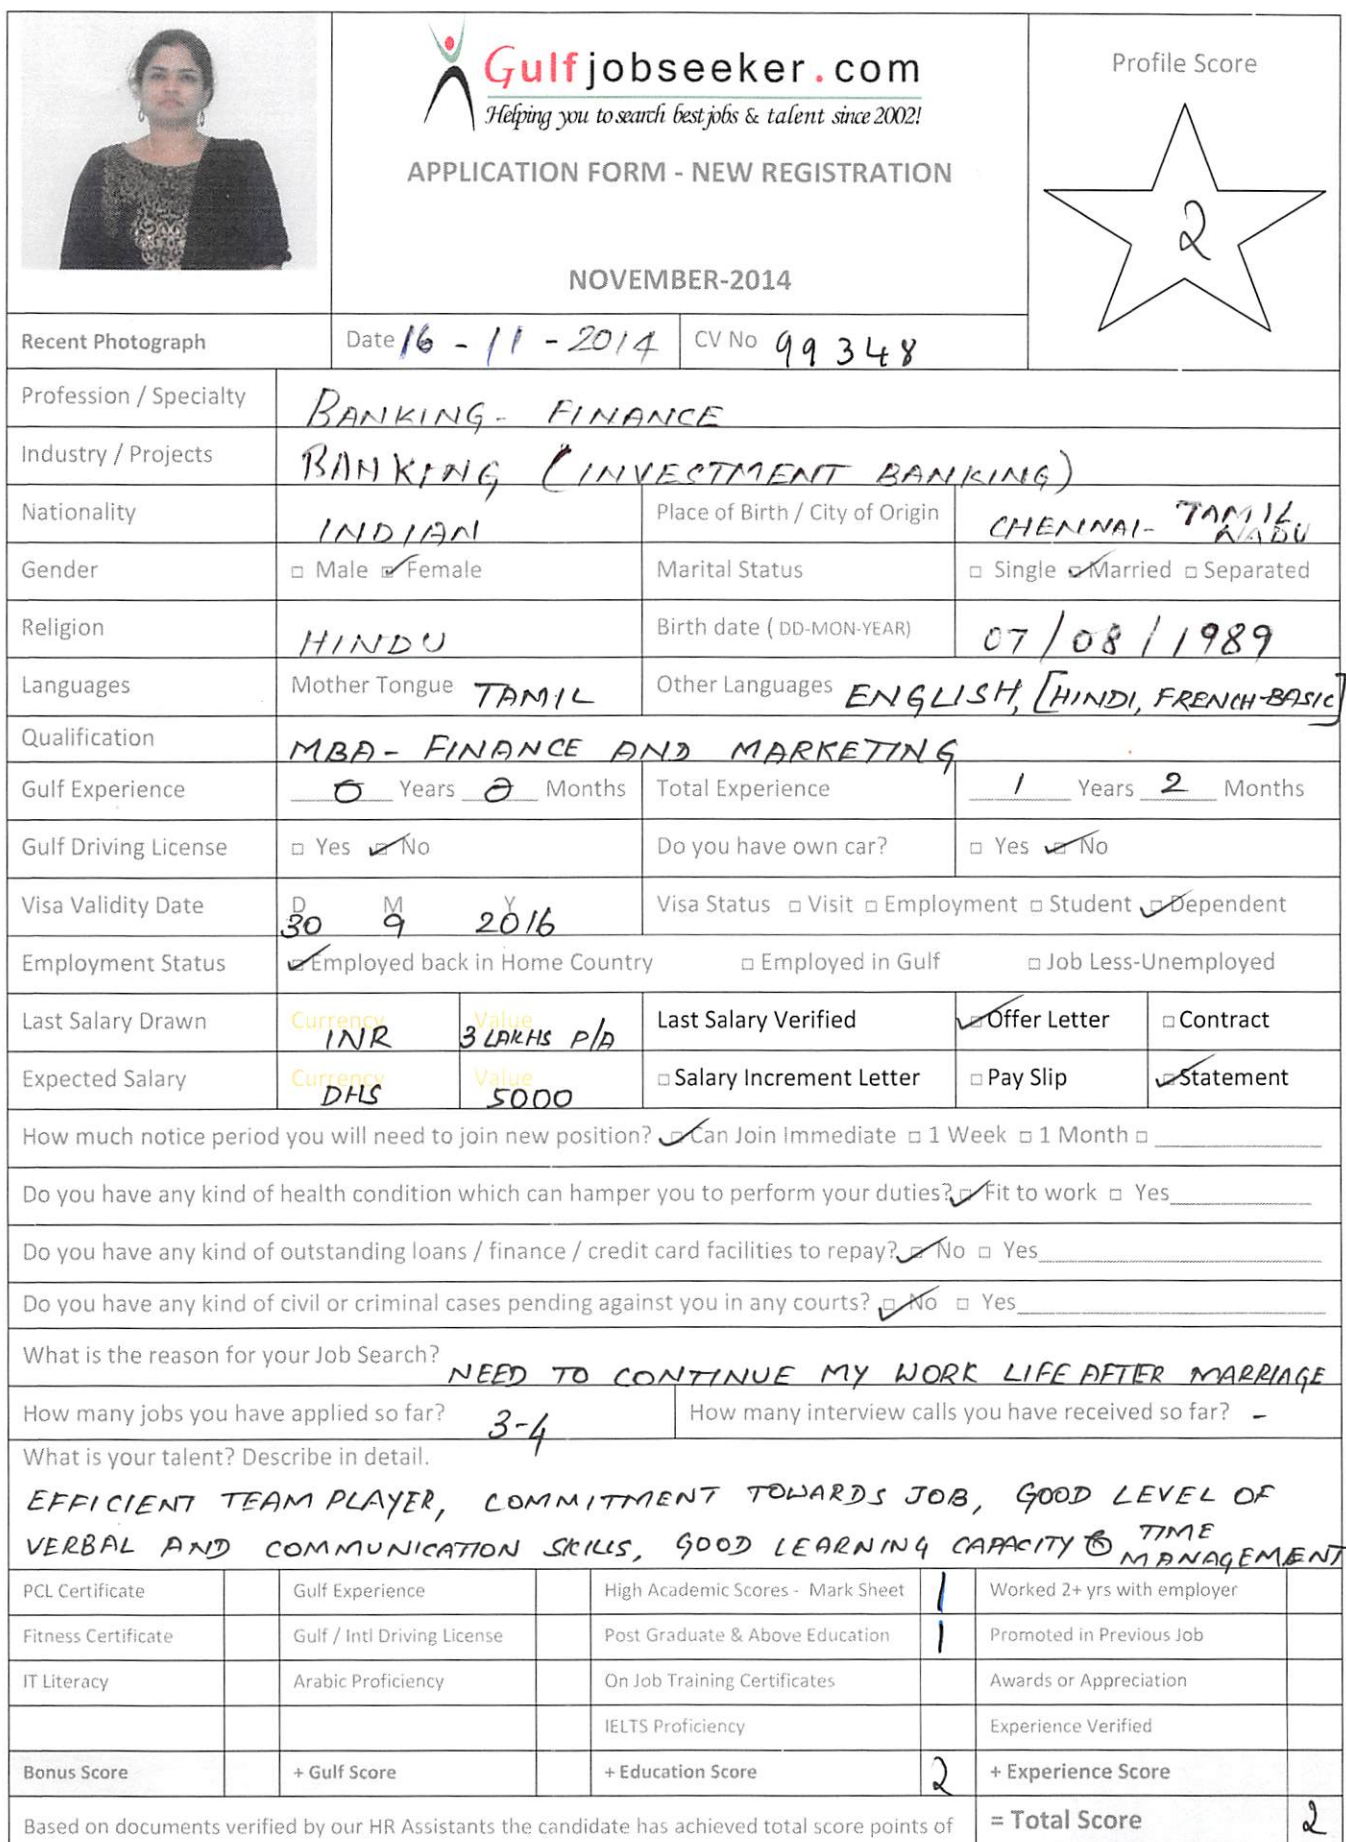 Gulfjobseeker.com
Helping you to search best jobs & talent since 2002!
APPLICATION FORM - NEW REGISTRATION
NOVEMBER-2014
Profile Score
2
Recent Photograph
Date 16 - 11 - 2014
CV No 99348
Profession / Specialty BANKING - FINANCE
Industry / Projects BANKING (INVESTMENT BANKING)
Nationality INDIAN Place of Birth / City of Origin CHENNAI- TAMIL NADU
Gender □ Male ☑ Female Marital Status □ Single ☑ Married □ Separated
Religion HINDU Birth date ( DD-MON-YEAR) 07/08/1989
Languages Mother Tongue TAMIL Other Languages ENGLISH, [HINDI, FRENCH-BASIC]
Qualification MBA - FINANCE AND MARKETING
Gulf Experience 0 Years 0 Months Total Experience 1 Years 2 Months
Gulf Driving License □ Yes ☑ No Do you have own car? □ Yes ☑ No
Visa Validity Date D 30 M 9 Y 2016 Visa Status □ Visit □ Employment □ Student ☑ Dependent
Employment Status ☑ Employed back in Home Country □ Employed in Gulf □ Job Less-Unemployed
Last Salary Drawn Currency INR Value 3 LAKHS P/A Last Salary Verified ☑ Offer Letter □ Contract
Expected Salary Currency DHS Value 5000 □ Salary Increment Letter □ Pay Slip ☑ Statement
How much notice period you will need to join new position? ☑ Can Join Immediate □ 1 Week □ 1 Month □
Do you have any kind of health condition which can hamper you to perform your duties? ☑ Fit to work □ Yes
Do you have any kind of outstanding loans / finance / credit card facilities to repay? ☑ No □ Yes
Do you have any kind of civil or criminal cases pending against you in any courts? ☑ No □ Yes
What is the reason for your Job Search? NEED TO CONTINUE MY WORK LIFE AFTER MARRIAGE
How many jobs you have applied so far? 3-4 How many interview calls you have received so far? -
What is your talent? Describe in detail.
EFFICIENT TEAM PLAYER, COMMITMENT TOWARDS JOB, GOOD LEVEL OF
VERBAL AND COMMUNICATION SKILLS, GOOD LEARNING CAPACITY & TIME MANAGEMENT
PCL Certificate Gulf Experience High Academic Scores - Mark Sheet 1 Worked 2+ yrs with employer
Fitness Certificate Gulf / Intl Driving License Post Graduate & Above Education 1 Promoted in Previous Job
IT Literacy Arabic Proficiency On Job Training Certificates Awards or Appreciation
IELTS Proficiency Experience Verified
Bonus Score + Gulf Score + Education Score 2 + Experience Score
Based on documents verified by our HR Assistants the candidate has achieved total score points of = Total Score 2